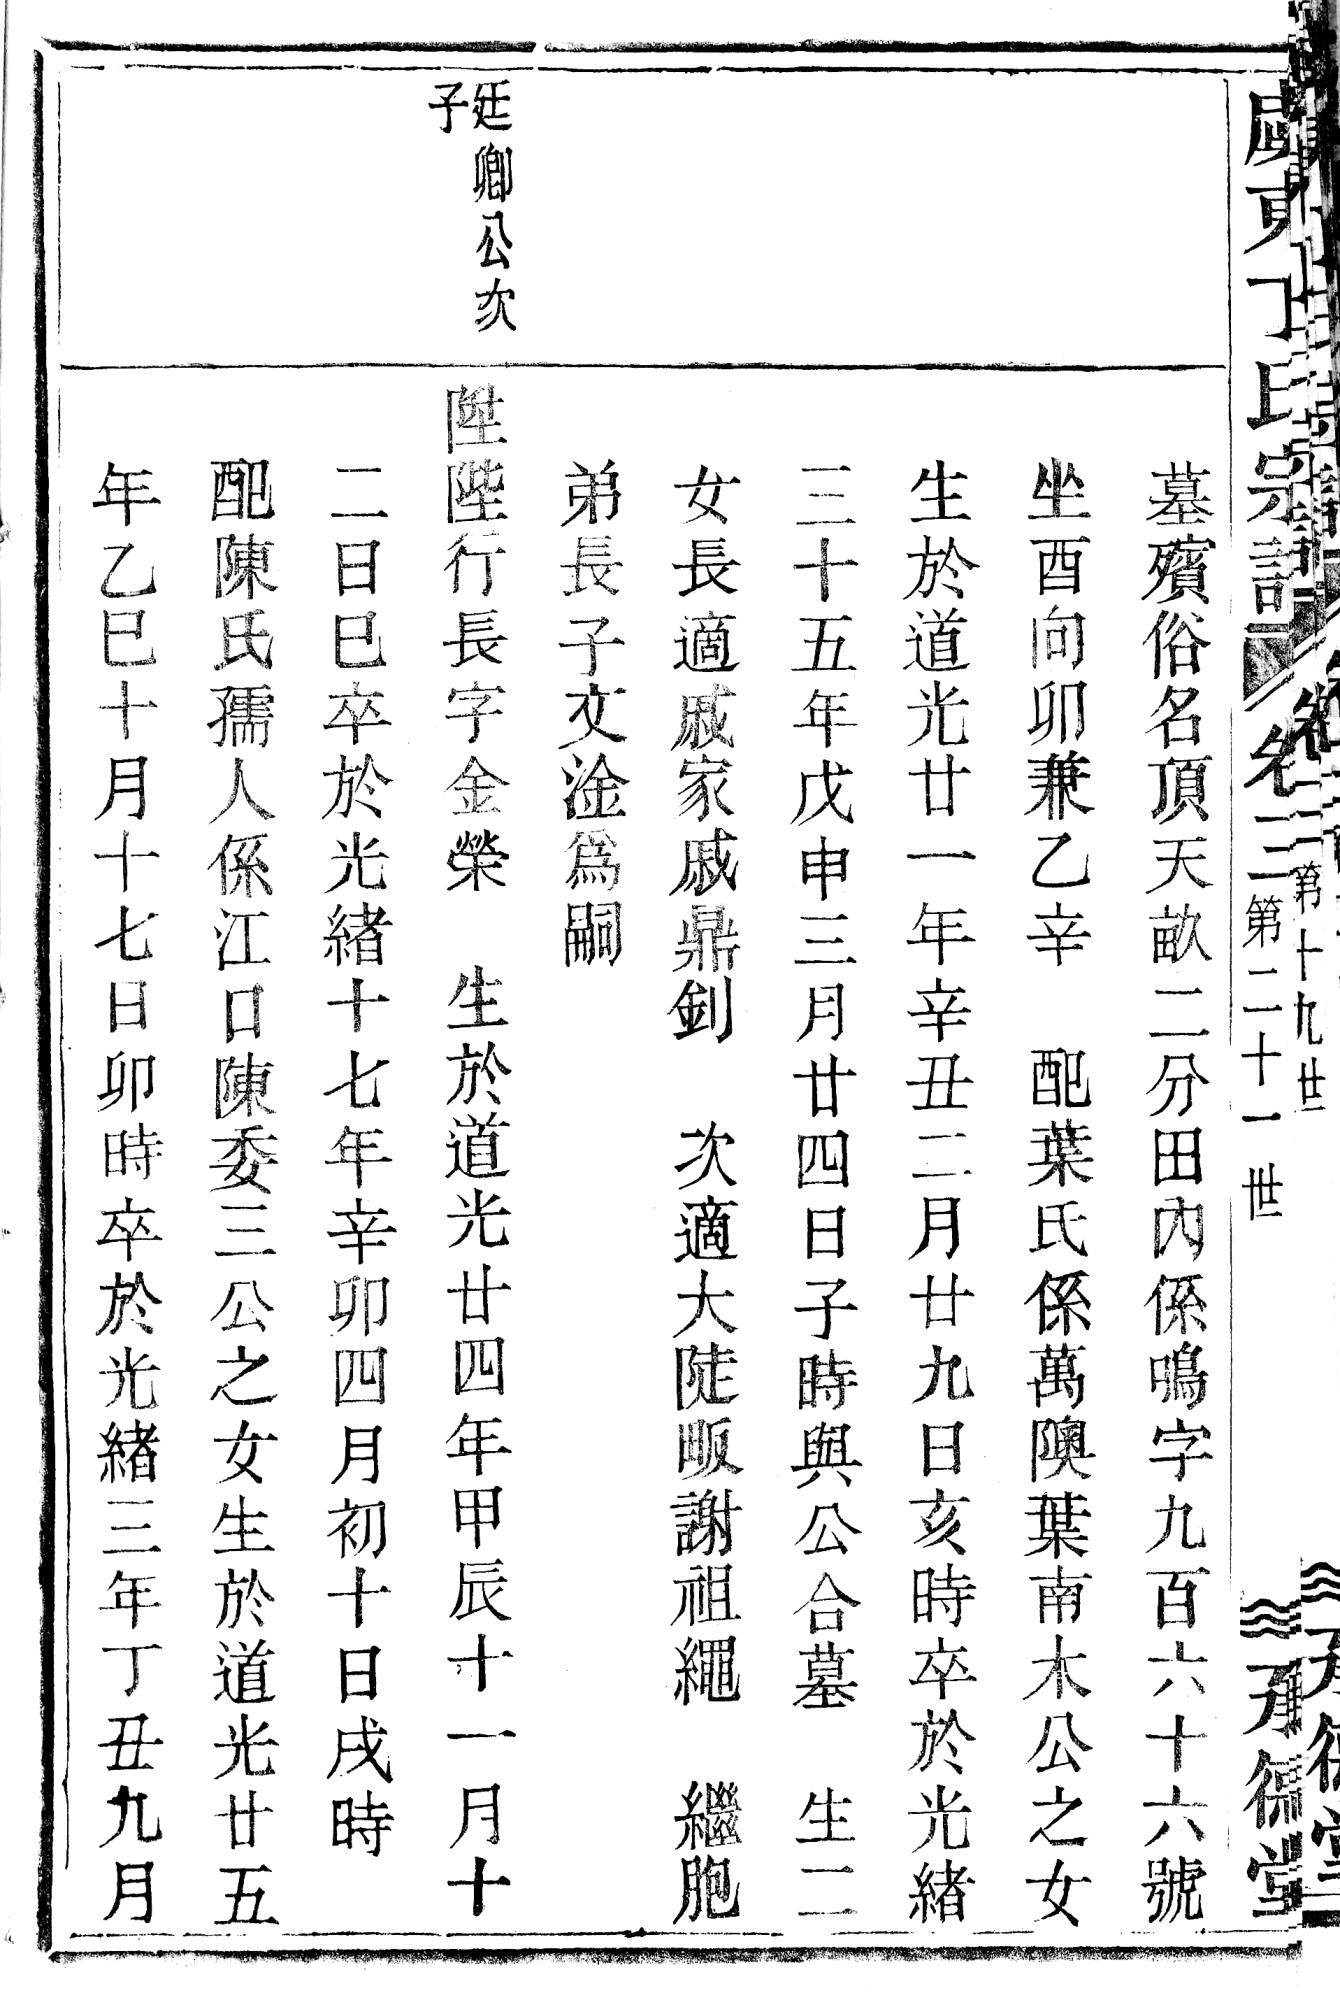 東丁氏宗譜 卷三 第二十一世 承德堂
第十九世
墓殯俗名頂天畝二分田內係鳴字九百六十六號
坐酉向卯兼乙辛 配葉氏係萬隩葉南木公之女
生於道光廿一年辛丑二月廿九日亥時卒於光緒
三十五年戊申三月廿四日子時與公合墓 生二
女長適戚家戚鼎釗 次適大陡畈謝祖繩 繼胞
弟長子文淦為嗣
廷卿公次
子
陞陛行長字金榮 生於道光廿四年甲辰十一月十
二日巳卒於光緒十七年辛卯四月初十日戌時
配陳氏孺人係江口陳委三公之女生於道光廿五
年乙巳十月十七日卯時卒於光緒三年丁丑九月